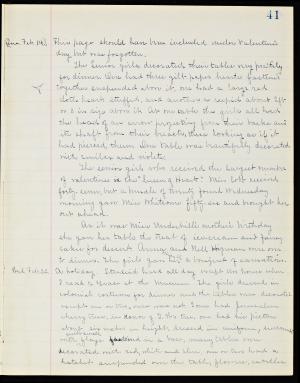 41
This page should have been included under Valentine's
day but was forgotten.
The Senior girls decorated their tables very prettily
for dinner. One had three gilt paper hearts fastened
together suspended above it, one had a large red
cloth heart stuffed, and another a
or 8 in size above it. At one table the girls all had
the head of an arrow projecting from their backs and
its shaft from their breasts, thus looking as if it
had pierced them. One table was beautifully decorated
with smilax and violets.
The senior girl who received the largest number
of valentines is the "Queen of Hearts". Miss
forty seven, but a bundle of twenty found Wednesday
morning gave Miss Whitcomb fifty six and brought her
out ahead.
As it was Miss Underhill's mother's birthday
she gave her table the treat of ice cream and
cake for dessert. Anna and Nell Hayman came over
to dinner. The girls gave her a bouquet of carnations.
Wed. Feb. 22. A holiday. Studied hard all day except the hours when
I read to at the Museum. The girls dressed in
colonial costume for dinner and the tables were decorated
cherry tree, in honor of G. W's tree, one had his picture
about six inches in height, dressed in uniform,
with flags in a base, many tables were
decorated with red, white and blue, one or two had a
hatchet suspended over the table, flowers, candles